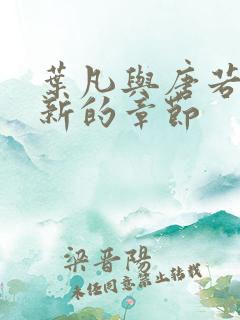 葉凡與唐若
新的章節
梁晋陽
未经同意禁止转载